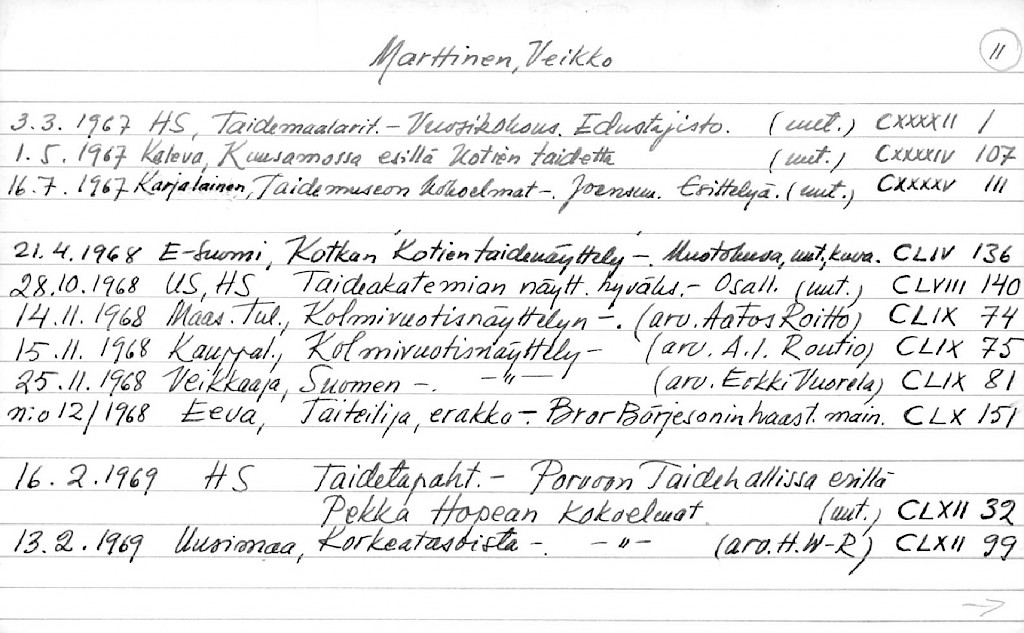 Marttinen, Veikko 11
3.3. 1967 HS, Taidemaalarit. - Vuosikokous. Edustajisto. (uut.) CXXXXII 1
1.5. 1967 Kaleva, Kuusamossa esillä Kotien taidetta (uut.) CXXXXIV 107
16.7. 1967 Karjalainen, Taidemuseon kokoelmat -. Joensuu. Esittelyä. (uut.) CXXXXV 111
21.4.1968 E-Suomi, Kotkan 'Kotien taidenäyttely' -. Muotokuva, uut., kuva. CLIV 136
28.10.1968 US, HS Taideakatemian näytt. hyväks. - Osall. (uut.) CLVIII 140
14.11.1968 Maas. Tul., Kolmivuotisnäyttelyn -. (arv. Aatos Roitto) CLIX 74
15.11.1968 Kauppal., Kolmivuotisnäyttely - (arv. A.I. Routio) CLIX 75
25.11.1968 Veikkaaja, Suomen -. -"- (arv. Erkki Vuorela) CLIX 81
n:o 12/1968 Eeva, Taiteilija, erakko -. Bror Börjesonin haast. main. CLX 151
16.2.1969 HS Taidetapaht. - Porvoon Taidehallissa esillä
Pekka Hopean kokoelmat (uut.) CLXII 32
13.2.1969 Uusimaa, Korkeatasoista -. -"- (arv. H.W-R) CLXII 99
→